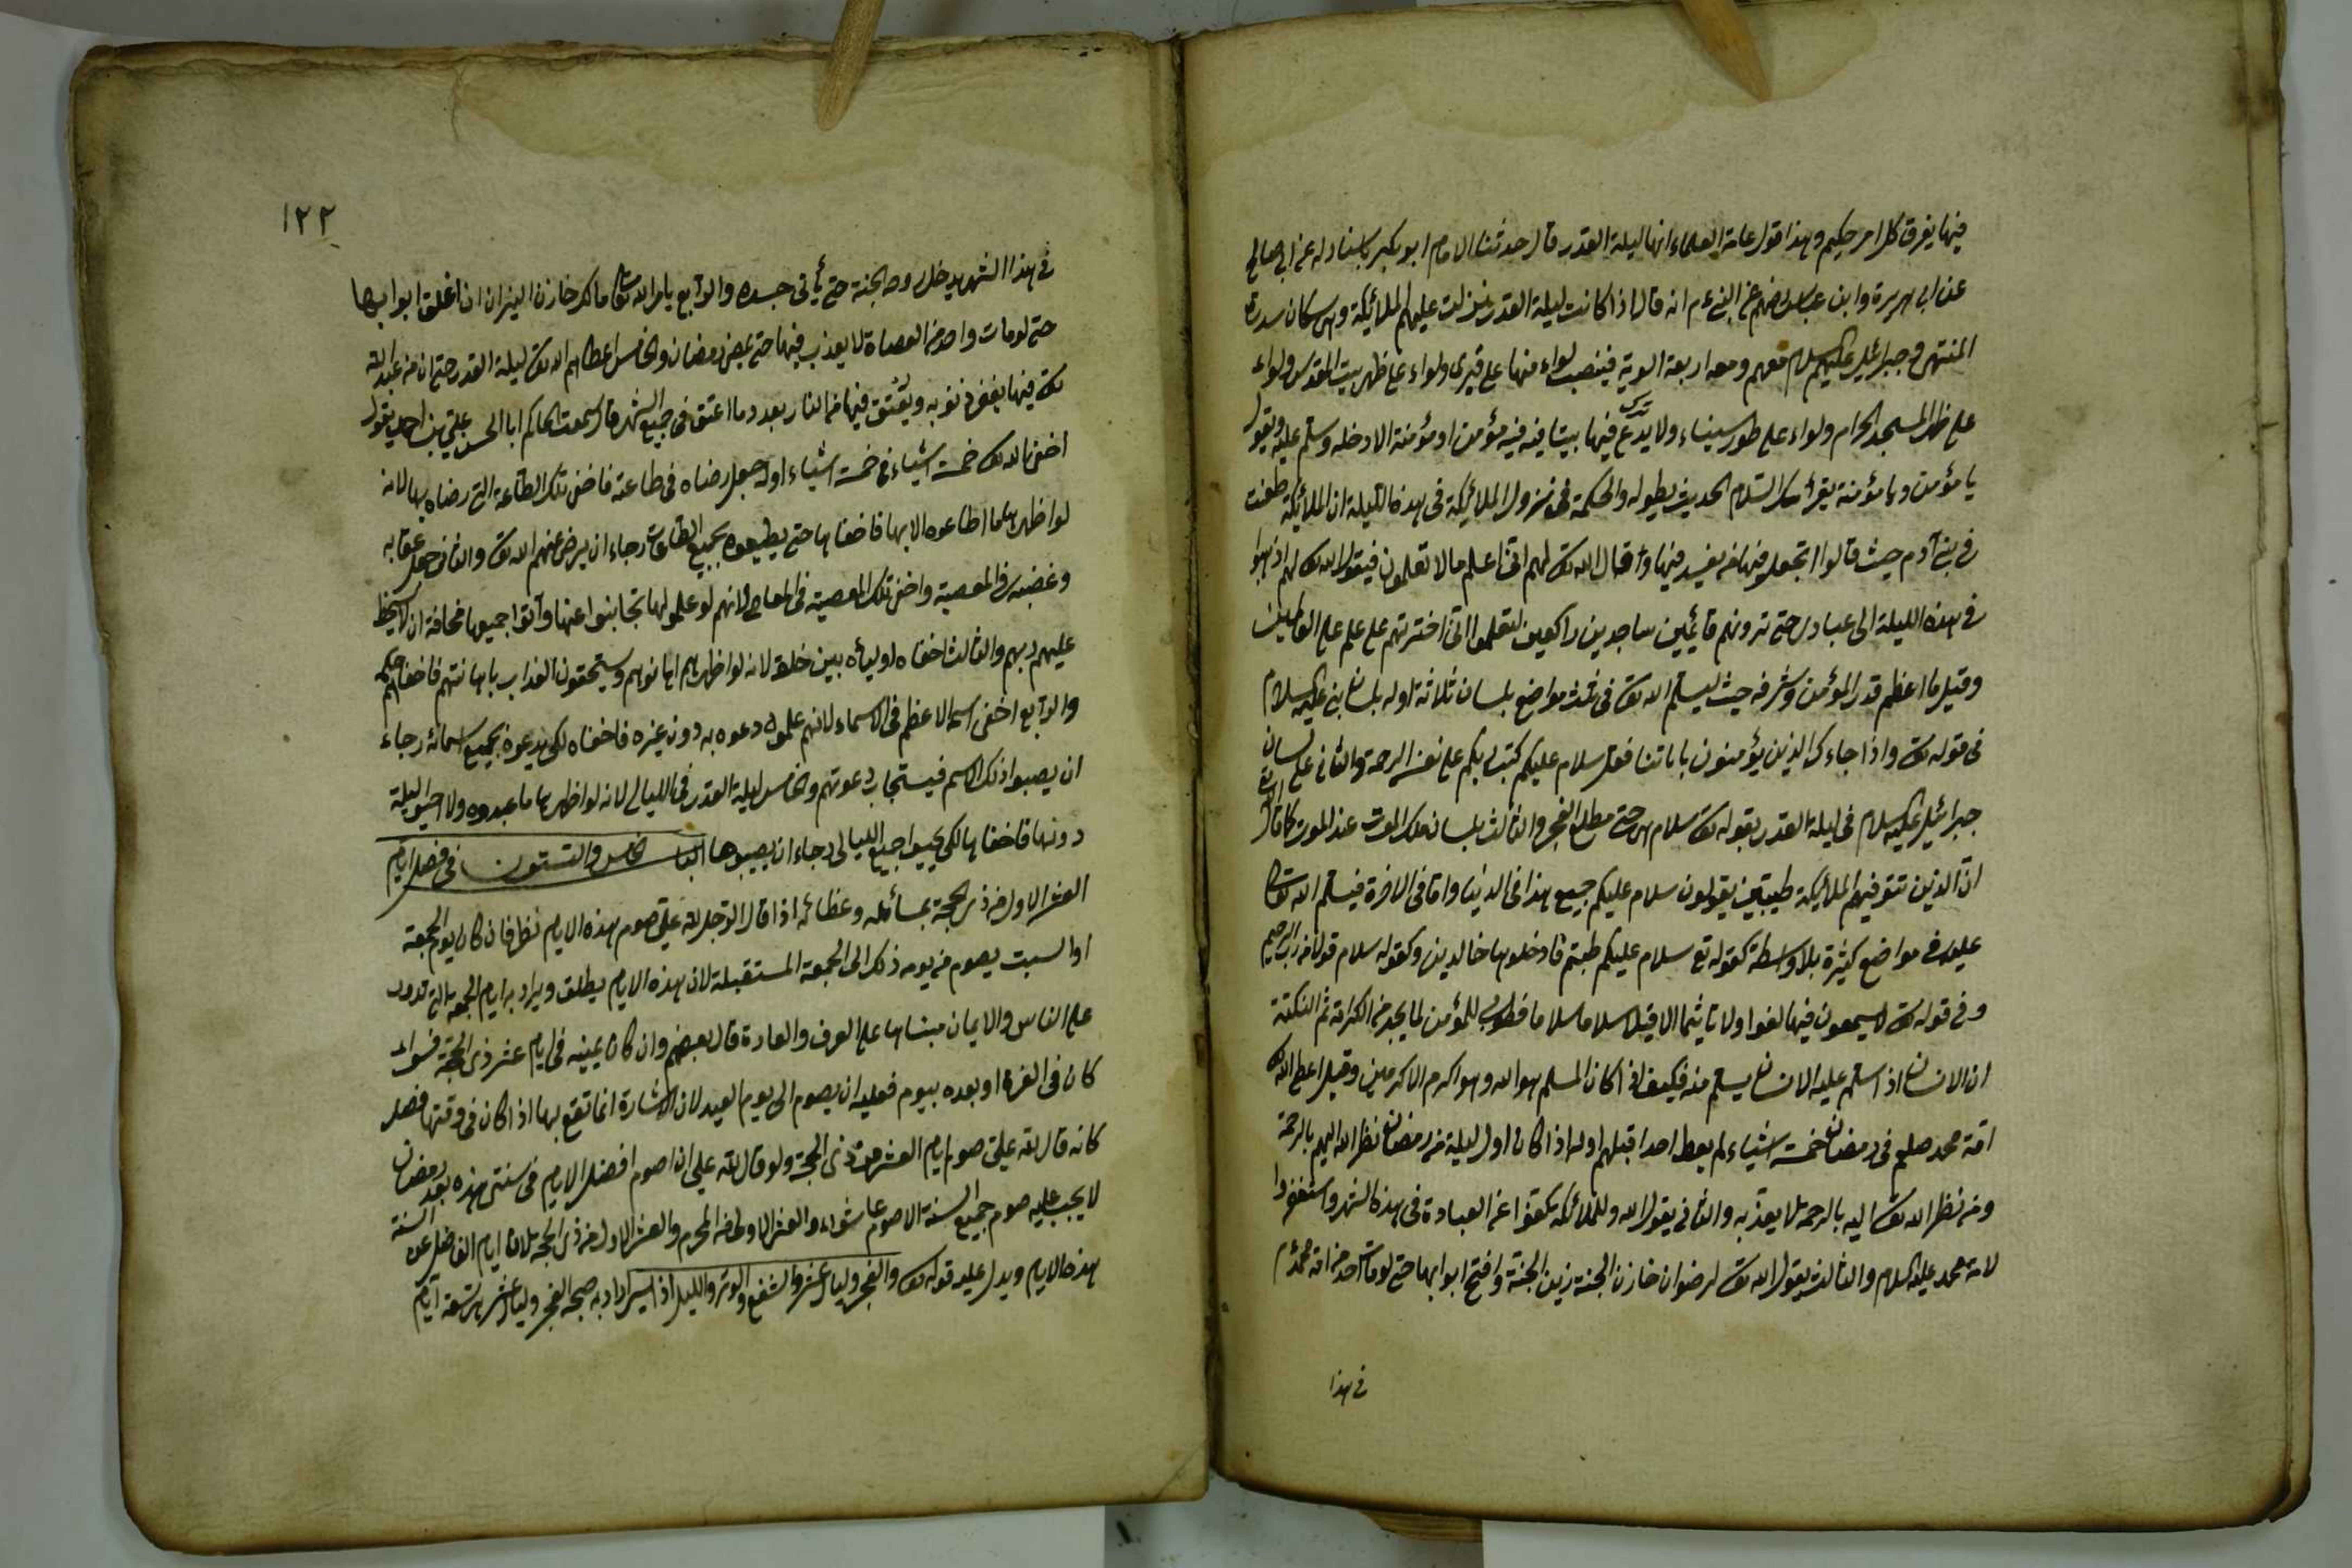 فيها يفرق كل امر حكيم وهذا قول عامة العلماء انها ليلة القدر قال حدثنا الامام ابو بكر باسناد له عن ابي صالح
عن ابي هريرة وابن عباس رضهم عن النبي ءم انه قال اذا كانت ليلة القدر نزلت عليهم الملائكة وهى سكان سدرة
المنتهى وجبرائيل عليهم السلام معهم ومعه اربعة الوية فينصب لواء منها على قبرى ولواء على ظهر بيت المقدس ولواء
على ظهر المسجد الحرام ولواء على طور سيناء ولا يدع فيها بيتا فيه مؤمن او مؤمنة الا دخله وسلم عليه ويقول
يا مؤمن ويا مؤمنة يقرأك السلام الحديث بطوله والحكمة فى نزول الملائكة فى هذه الليلة ان الملائكة طعنت
فى بنى آدم حيث قالوا اتجعل فيها من يفسد فيها وقال الله تع لهم انى اعلم ما لا تعلمون فيقول الله تع لهم اذهبوا
فى هذه الليلة الى عبادى حتى ترونهم قائمين ساجدين راكعين لتعلموا انى اخترتهم على علم على العالمين
وقيل ما اعظم قدر المؤمن وشرفه حيث يسلم الله تع فى ثلث مواضع بلسان ثلاثة اوله بلسان نبى عليه السلام
فى قوله تع واذا جاءك الذين يؤمنون باياتنا فقل سلام عليكم كتب ربكم على نفسه الرحمة والثانى على لسان
جبرائيل عليه السلام فى ليلة القدر بقوله تع سلام هى حتى مطلع الفجر والثالث بلسان ملك الموت عند الموت كما قال
ان الذين تتوفيهم الملائكة طيبين يقولون سلام عليكم جميع هذا فى الدنيا واما فى الاخرة فيسلم الله تعا
عليه فى مواضع كثيرة بلا واسطة كقوله تع سلام عليكم طبتم فادخلوها خالدين وكقوله سلام قولا من رب رحيم
وفى قوله تع لا يسمعون فيها لغوا ولا تاثيما الا قيلا سلاما سلاما فطوبى للمؤمن لما يجد من الكرامة ثم النكتة
ان الانسان اذا سلم عليه الانسان يسلم منه فكيف اذا كان المسلم هو الله وهو اكرم الاكرمين وقيل اعطى الله
امة محمد صلعم فى رمضان خمسة اشياء لم يعط احدا قبلهم اوله اذا كان اول ليلة من رمضان نظر الله اليهم بالرحمة
ومن نظر الله تعا اليه بالرحمة لا يعذبه والثانى يقول الله للملائكة كفوا عن العبادة فى هذا الشهر واستغفروا
لامة محمد عليه السلام والثالث يقول الله تع لرضوان خازن الجنة زين الجنة وافتح ابوابها حتى لو مات احد من امة محمد ءم
فى هذا
١٢٢
فى هذا الشهر يدخل روحه الجنة حتى يأتى جسده والرابع يامر الله تعا مالك خازن النيران ان اغلق ابوابها
حتى لو مات واحد من العصاة لا يعذب فيها حتى يمضى رمضان والخامس اعطاهم الله تع ليلة القدر حتى ان من عبد الله
تع فيها يغفر ذنوبه ويعتق فيها من النار بعدد ما اعتق فى جميع الشهر قال سمعت الحاكم ابا الحسن على بن احمد يقول
اخفى الله تع خمسة اشياء فى خمسة اشياء اوله جعل رضاه فى طاعته فاخفى تلك الطاعة التى رضاه بها لانه
لو اظهرها ما اطاعوه الا بها فاخفاها حتى يطيعوه بجميع الطاعات رجاء ان يرضى عنهم الله تع والثانى جعل عقابه
وغضبه فى المعصية واخفى تلك المعصية فى المعاصى لانهم لو علموا بها تجانبوا عنها وآتوا جميعها مخافة ان لا يسخط
عليهم ربهم والثالث اخفاه اولياءه بين خلقه لانه لو اظهرهم اهانوهم ويستحقون العذاب باهانتهم فاخفاهم
والرابع اخفى اسمه الاعظم فى الاسماء لانهم علموا دعوه به دون غيره فاخفاه لكى يدعوه بجميع اسمائه رجاء
ان يصيبوا ذلك الاسم فيستجاب دعوتهم والخامس ليلة القدر فى الليالى لانه لو اظهرها ما عبدوه ولا احيوا ليلة
دونها فاخفاها لكى يحييوا جميع الليالى رجاء ان يصيبوها الباب الخامس والستون فى فضل ايام
العشر الاول من ذى الحجة بمسائله وعظائمه اذا قال الرجل لله على صوم هذه الايام نظر فان كان يوم الجمعة
او السبت يصوم من يومه ذلك الى الجمعة المستقبلة لان هذه الايام يطلق ويراد به ايام الجمعة التى تدور
على الناس والايمان مبناها على العرف والعادة قال بعضهم وان كان يمينه فى ايام عشر ذى الحجة فسواء
كان فى الغرة او بعده بيوم فعليه ان يصوم الى يوم العيد لان الاشارة انما تقع بها اذا كان فى وقتها فصار
كانه قال لله على صوم ايام العشر من ذى الحجة ولو قال لله على ان اصوم افضل الايام فى سنتى هذه بعد رمضان
لا يجب عليه صوم جميع السنة الا صوم عاشوراء والعشر الاولى من المحرم والعشر الاول من ذى الحجة لان ايام الفاضل عن السنة
هذه الايام ويدل عليه قوله تع والفجر وليال عشر والشفع والوتر والليل اذا يسر اراد به صبح الفجر وليال عشر هى تسعة ايام